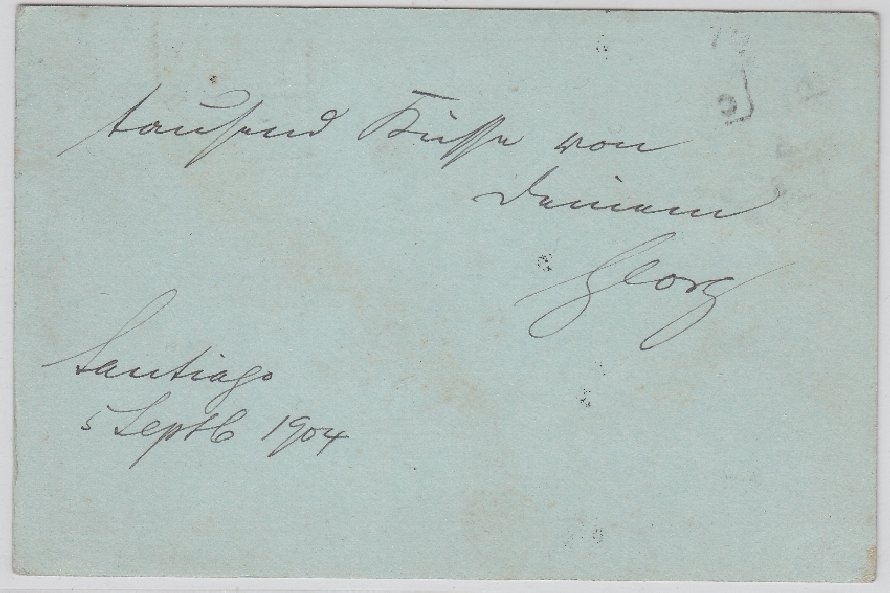 tausend Küsse von
Deinem
Georg
Santiago
5 Septb 1904